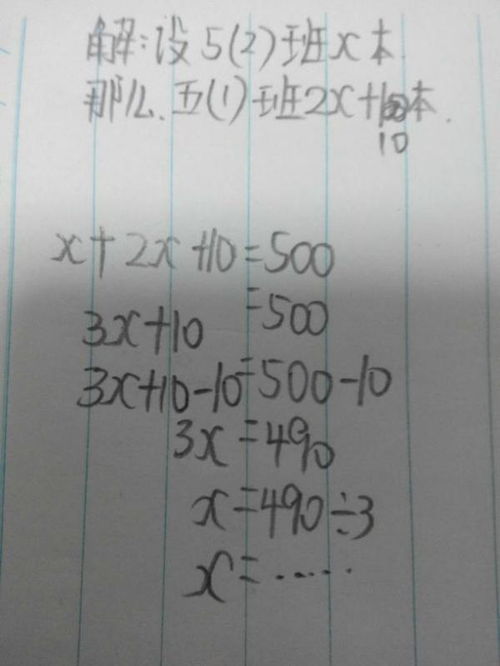 解:设5(2)班x本
那么.五(1)班2x+10本.
x+2x+10=500
3x+10=500
3x+10-10=500-10
3x=490
x=490÷3
x=……